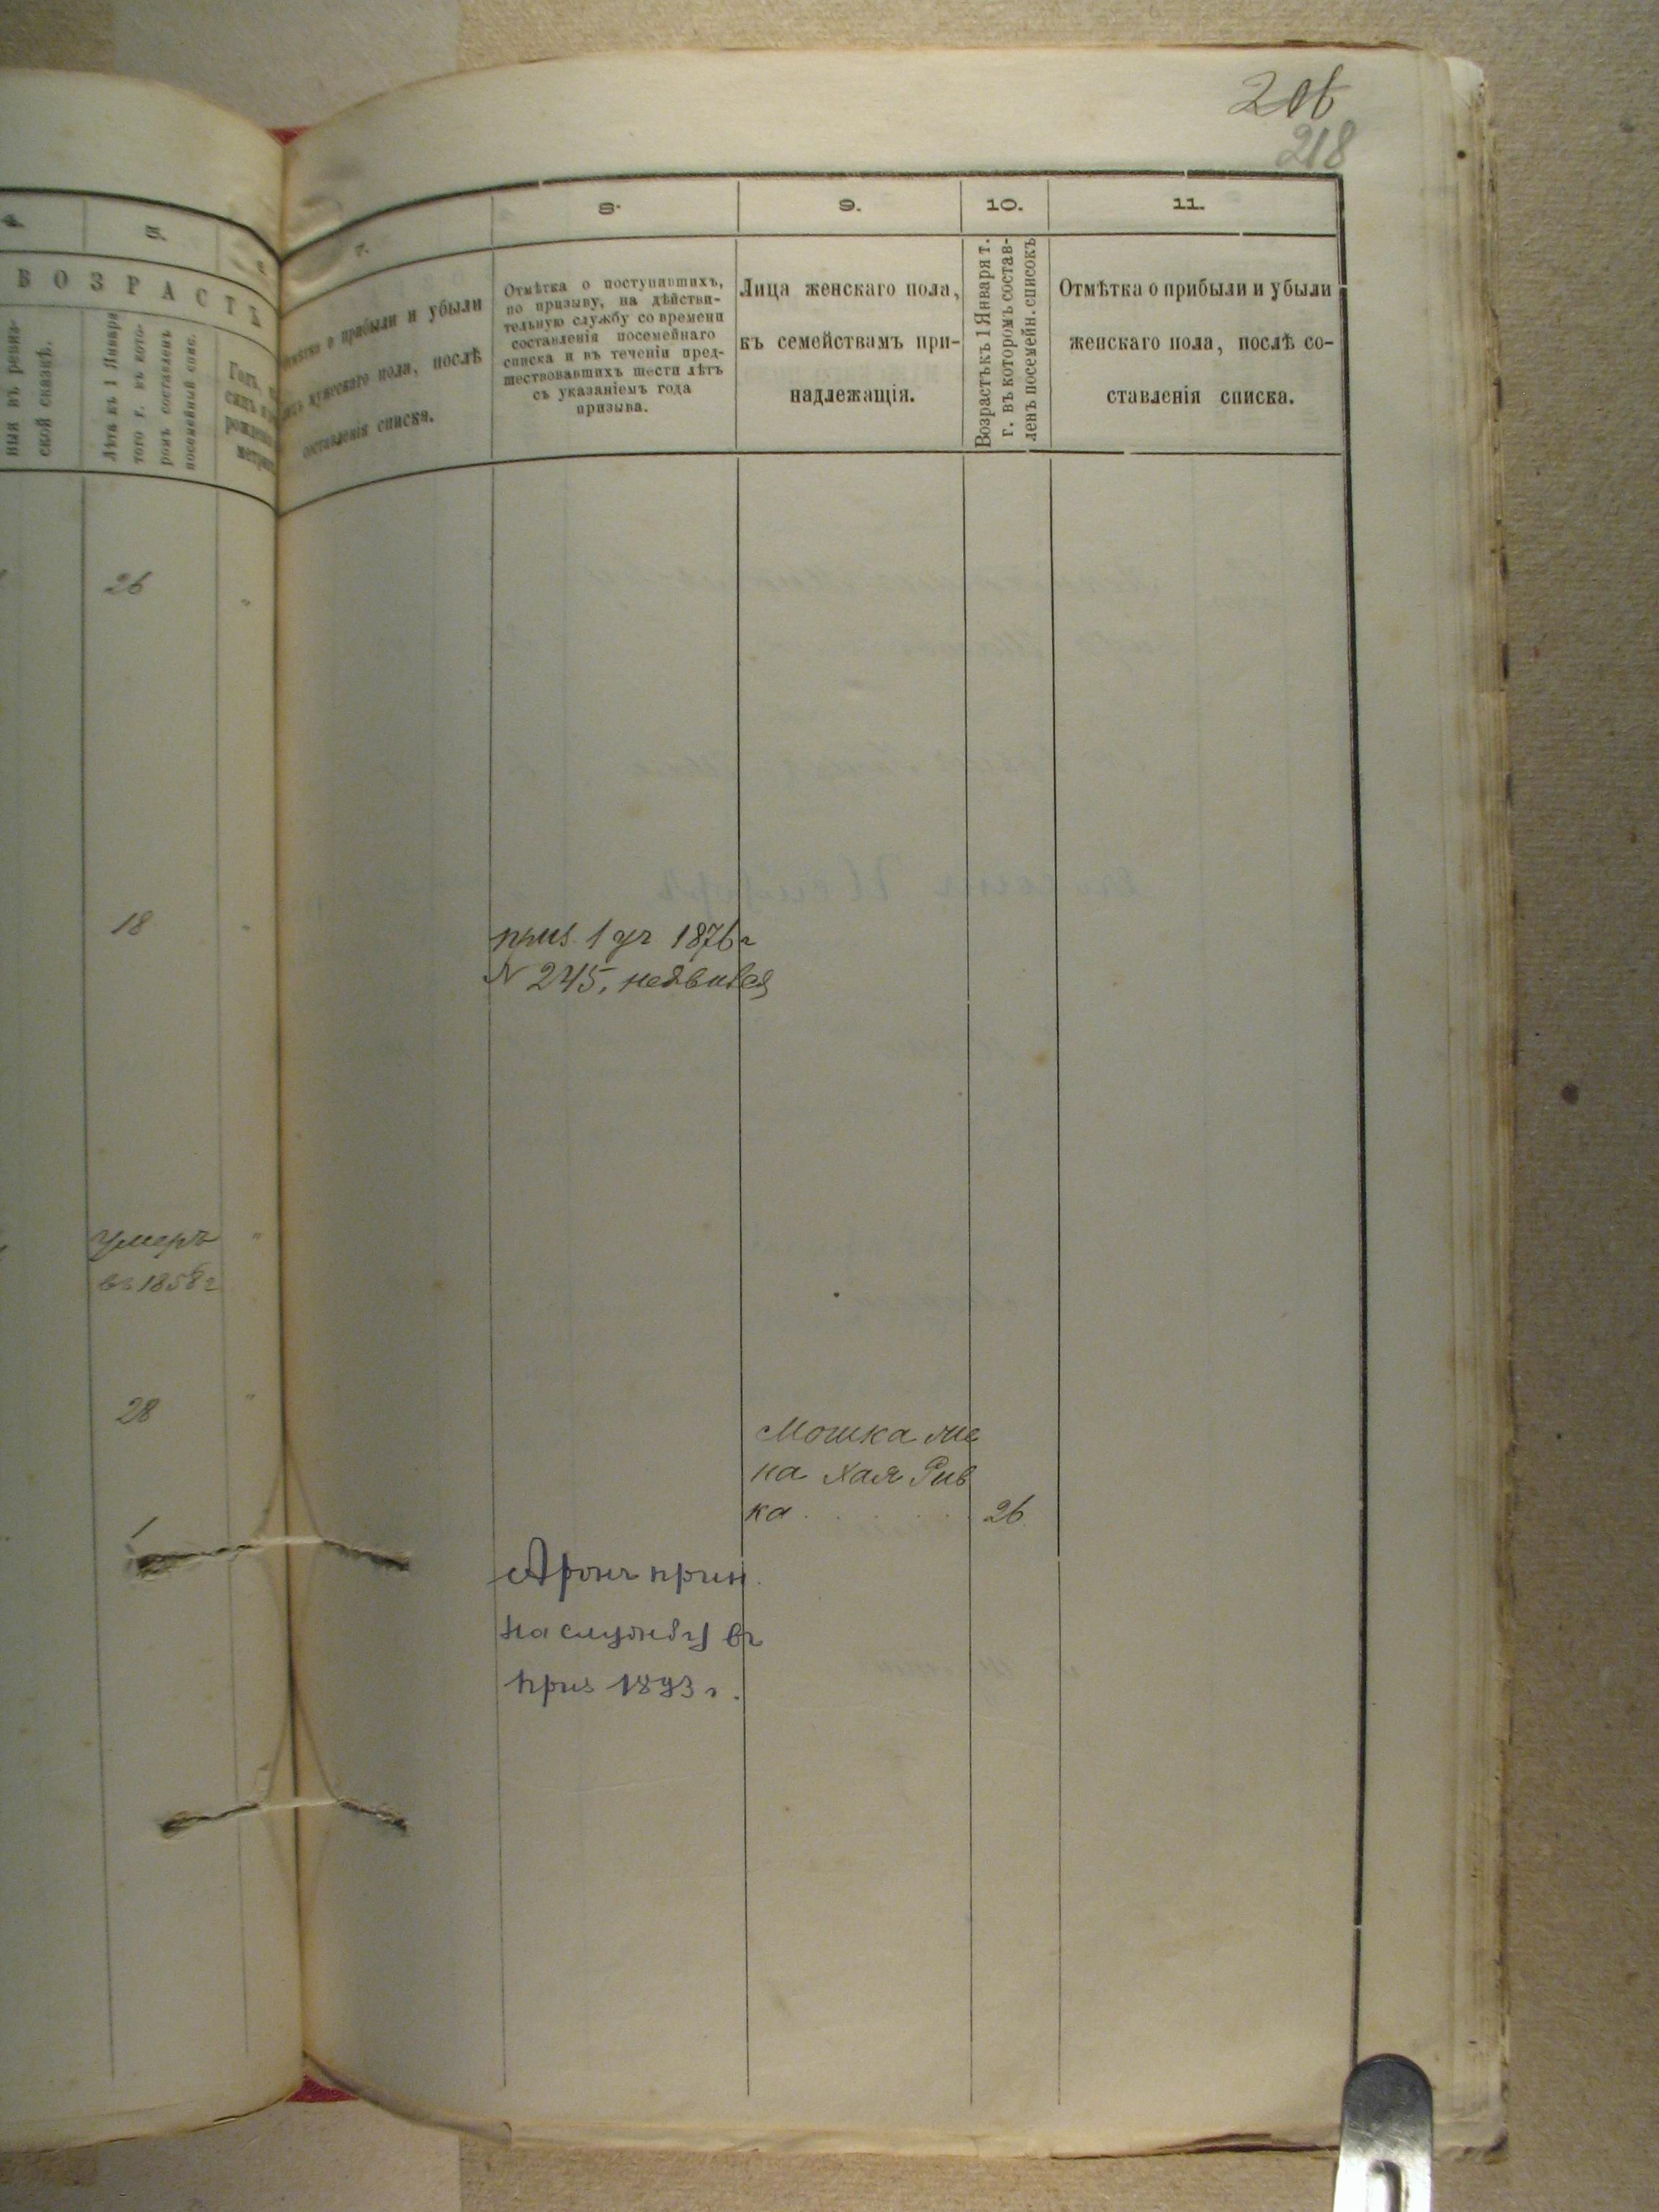 206
218
4.
5.
ВОЗРАСТЪ
ской сказкѣ.
Лѣта къ 1 Января
того г. въ кото-
ромъ составленъ
посемейный спис.
26
18
умеръ
въ 1858 г
28
1
7.
о прибыли и убыли
мужескаго пола, послѣ
составленія списка.
8.
Отмѣтка о поступившихъ,
по призыву, на дѣйстви-
тельную службу со времени
составленія посемейнаго
списка и въ теченіи пред-
шествовавшихъ шести лѣтъ
съ указаніемъ года
призыва.
9.
Лица женскаго пола,
къ семействамъ при-
надлежащія.
10.
Возрастъ къ 1 Января т.
г. въ которомъ состав-
ленъ посемейн. списокъ
11.
Отмѣтка о прибыли и убыли
женскаго пола, послѣ со-
ставленія списка.
приз. 1 уч 1876 г
N 245, неявився
Мошка же
на Хая Рив
ка . . . . . 26
Аронъ прин.
на службу въ
приз 1893 г.